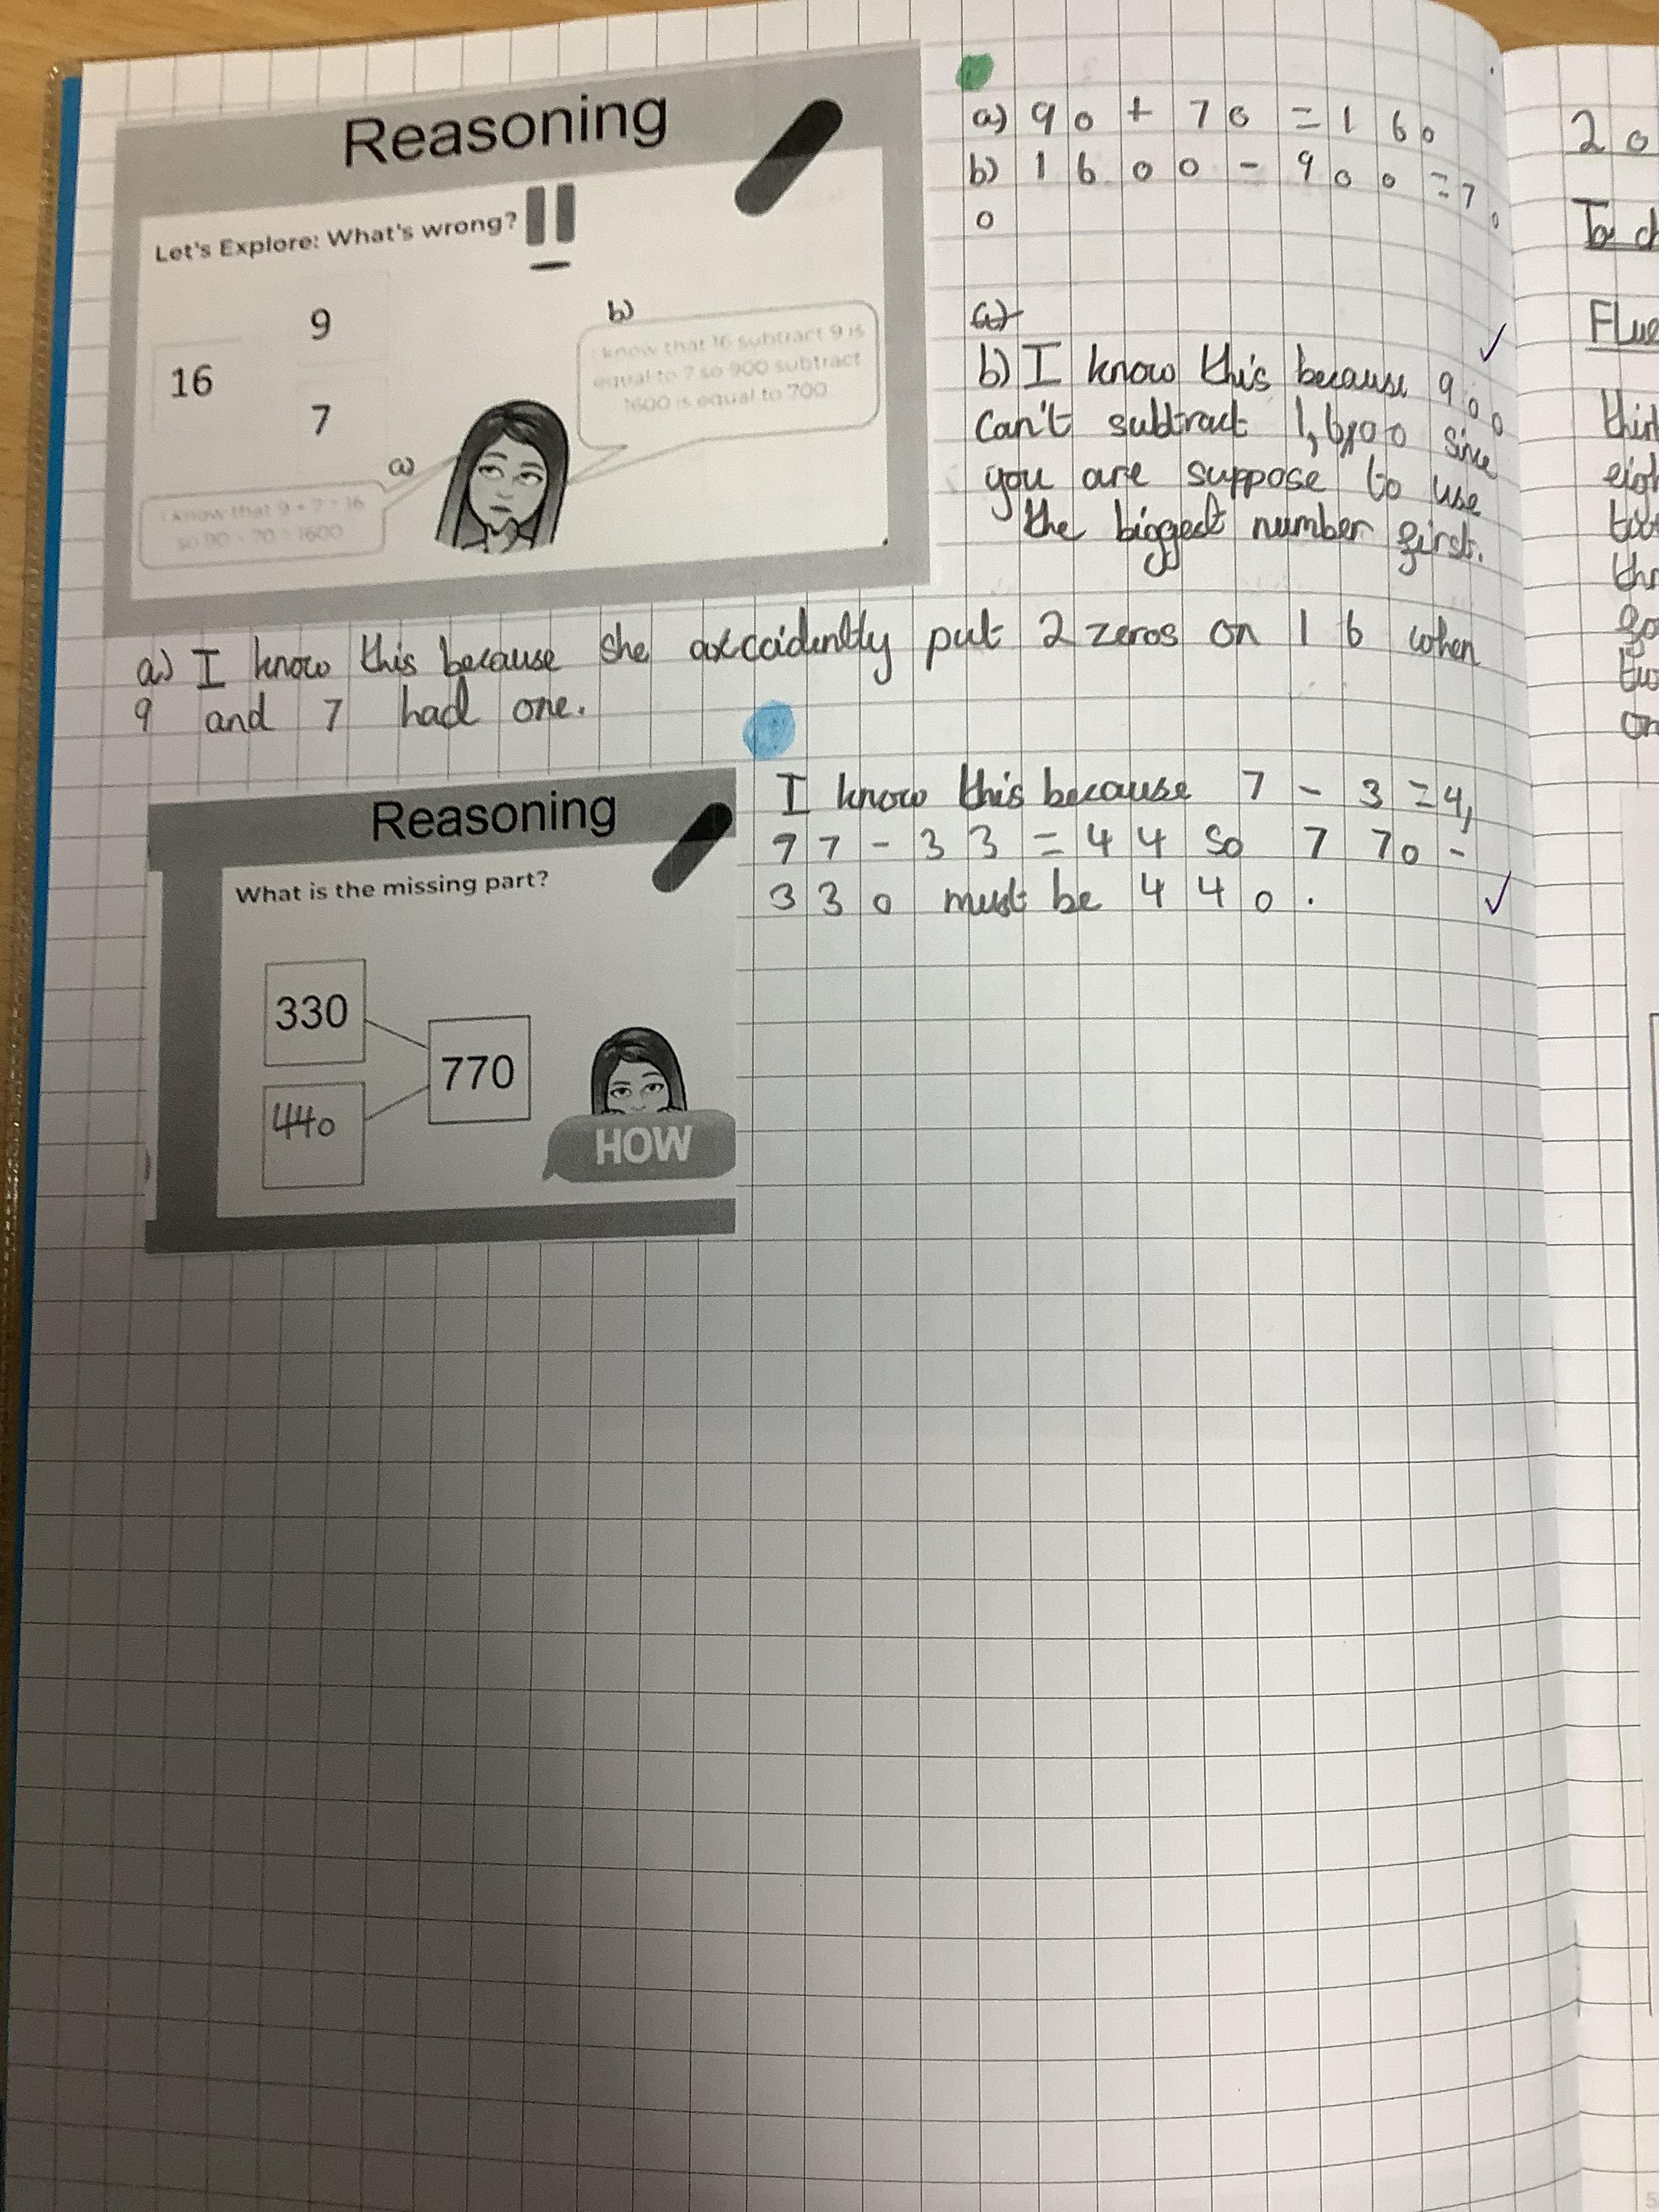 Reasoning
Let's Explore: What's wrong?
16
9
7
a)
I know that 9 + 7 = 16
so 90 + 70 = 1600
b)
I know that 16 subtract 9 is
equal to 7 so 900 subtract
1600 is equal to 700
a) 90 + 70 = 160
b) 1600 - 900 = 70
0
a)
b) I know this because 900
can't subtract 1,600 since
you are suppose to use
the biggest number first.
a) I know this because she axccidently put 2 zeros on 16 when
9 and 7 had one.
Reasoning
What is the missing part?
330
440
770
HOW
I know this because 7 - 3 = 4,
77 - 33 = 44 so 770 -
330 must be 440.
20
To ch
Flue
thir
eigh
thr